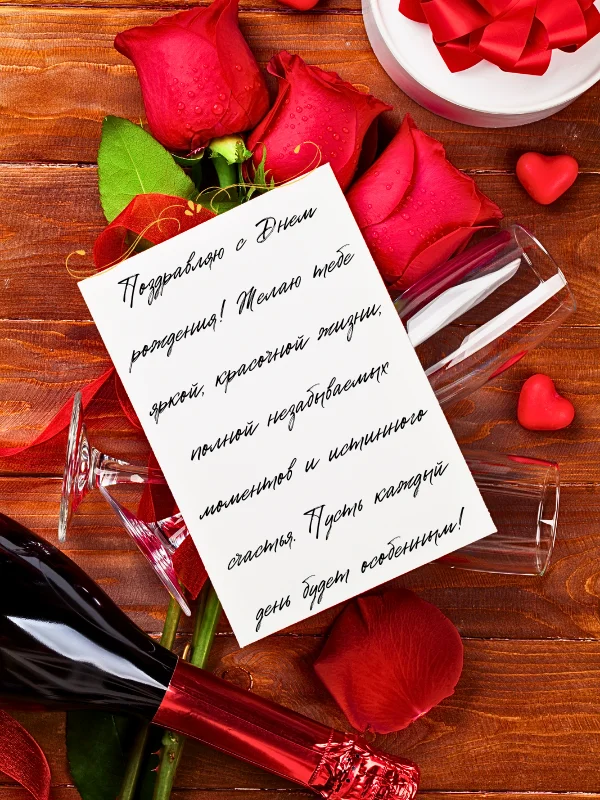 Поздравляю с Днем
рождения! Желаю тебе
яркой, красочной жизни,
полной незабываемых
моментов и истинного
счастья. Пусть каждый
день будет особенным!